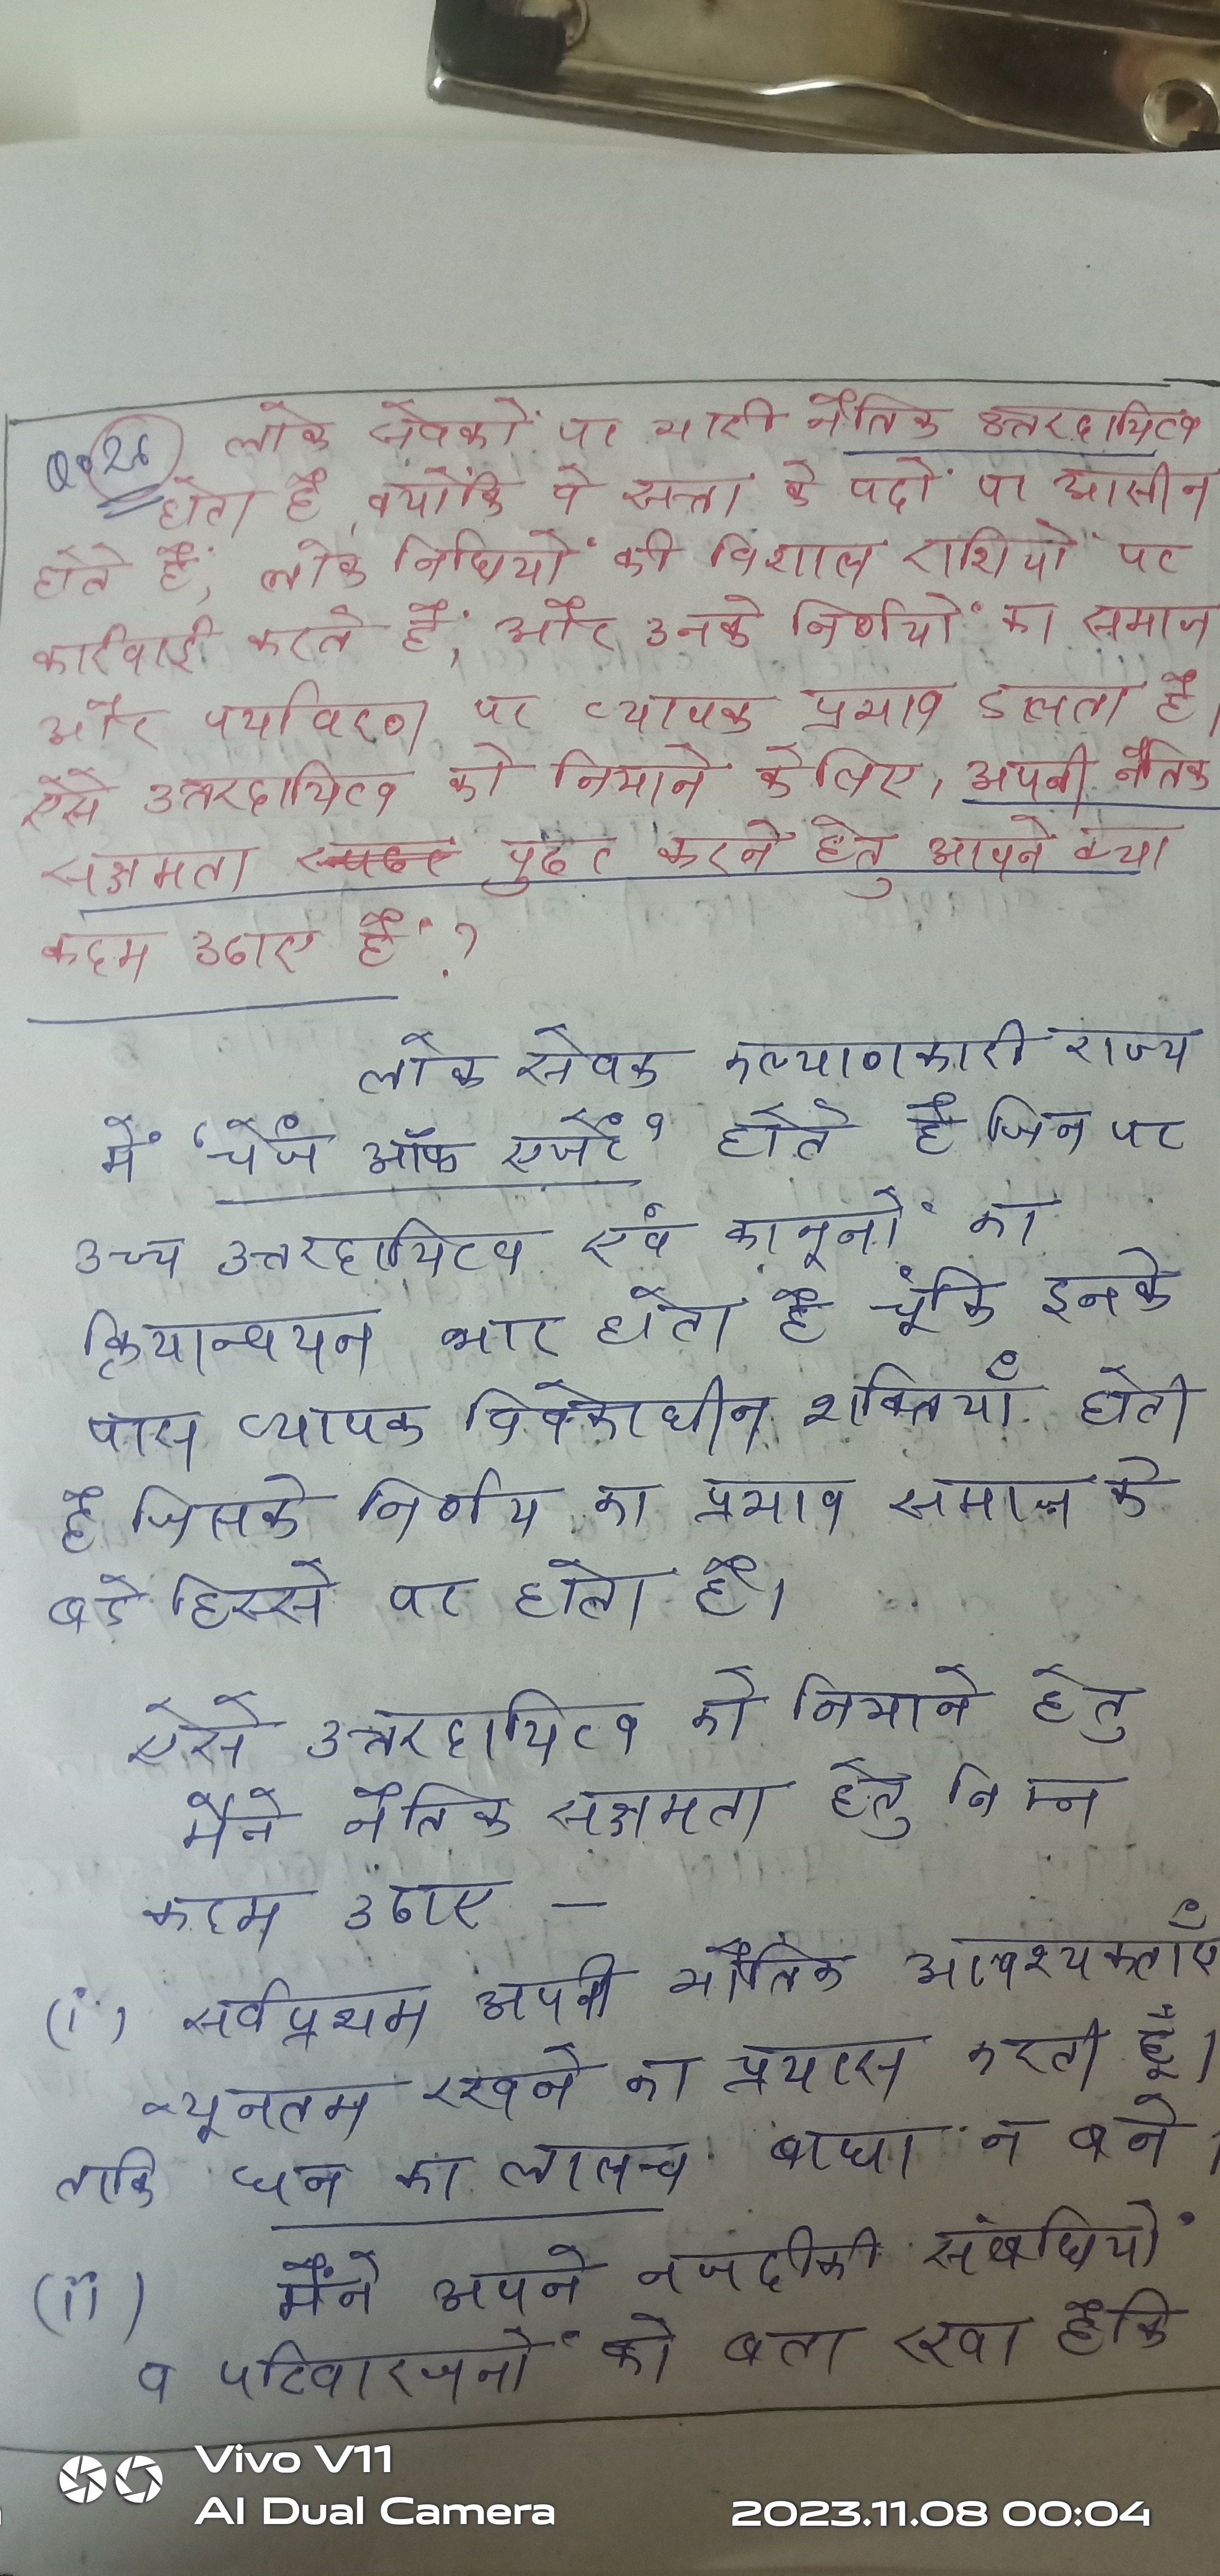 Q.26 लोक सेवकों पर भारी नैतिक उत्तरदायित्व
होता है, क्योंकि वे सत्ता के पदों पर आसीन
होते हैं, लोक निधियों की विशाल राशियों पर
कार्रवाई करते हैं, और उनके निर्णयों का समाज
और पर्यावरण पर व्यापक प्रभाव डालता है।
ऐसे उत्तरदायित्व को निभाने के लिए, अपनी नैतिक
सक्षमता पुष्ट करने हेतु आपने क्या
कदम उठाए हैं ?
लोक सेवक कल्याणकारी राज्य
में 'चेंज ऑफ एजेंट' होते है जिन पर
उच्च उत्तरदायित्व एवं कानूनों का
क्रियान्वयन भार होता है चूंकि इनके
पास व्यापक विवेकाधीन शक्तियाँ होती
है जिसके निर्णय का प्रभाव समाज के
बडे हिस्से पर होता है।
ऐसे उत्तरदायित्व को निभाने हेतु
मैंने नैतिक सक्षमता हेतु निम्न
कदम उठाए –
(i) सर्वप्रथम अपनी भौतिक आवश्यकताएँ
न्यूनतम रखने का प्रयास करती हूँ।
ताकि धन का लालच बाधा न बने।
(ii) मैंने अपने नजदीकी संबंधियों
व परिवारजनों को बता रखा है कि
Vivo V11
AI Dual Camera
2023.11.08 00:04